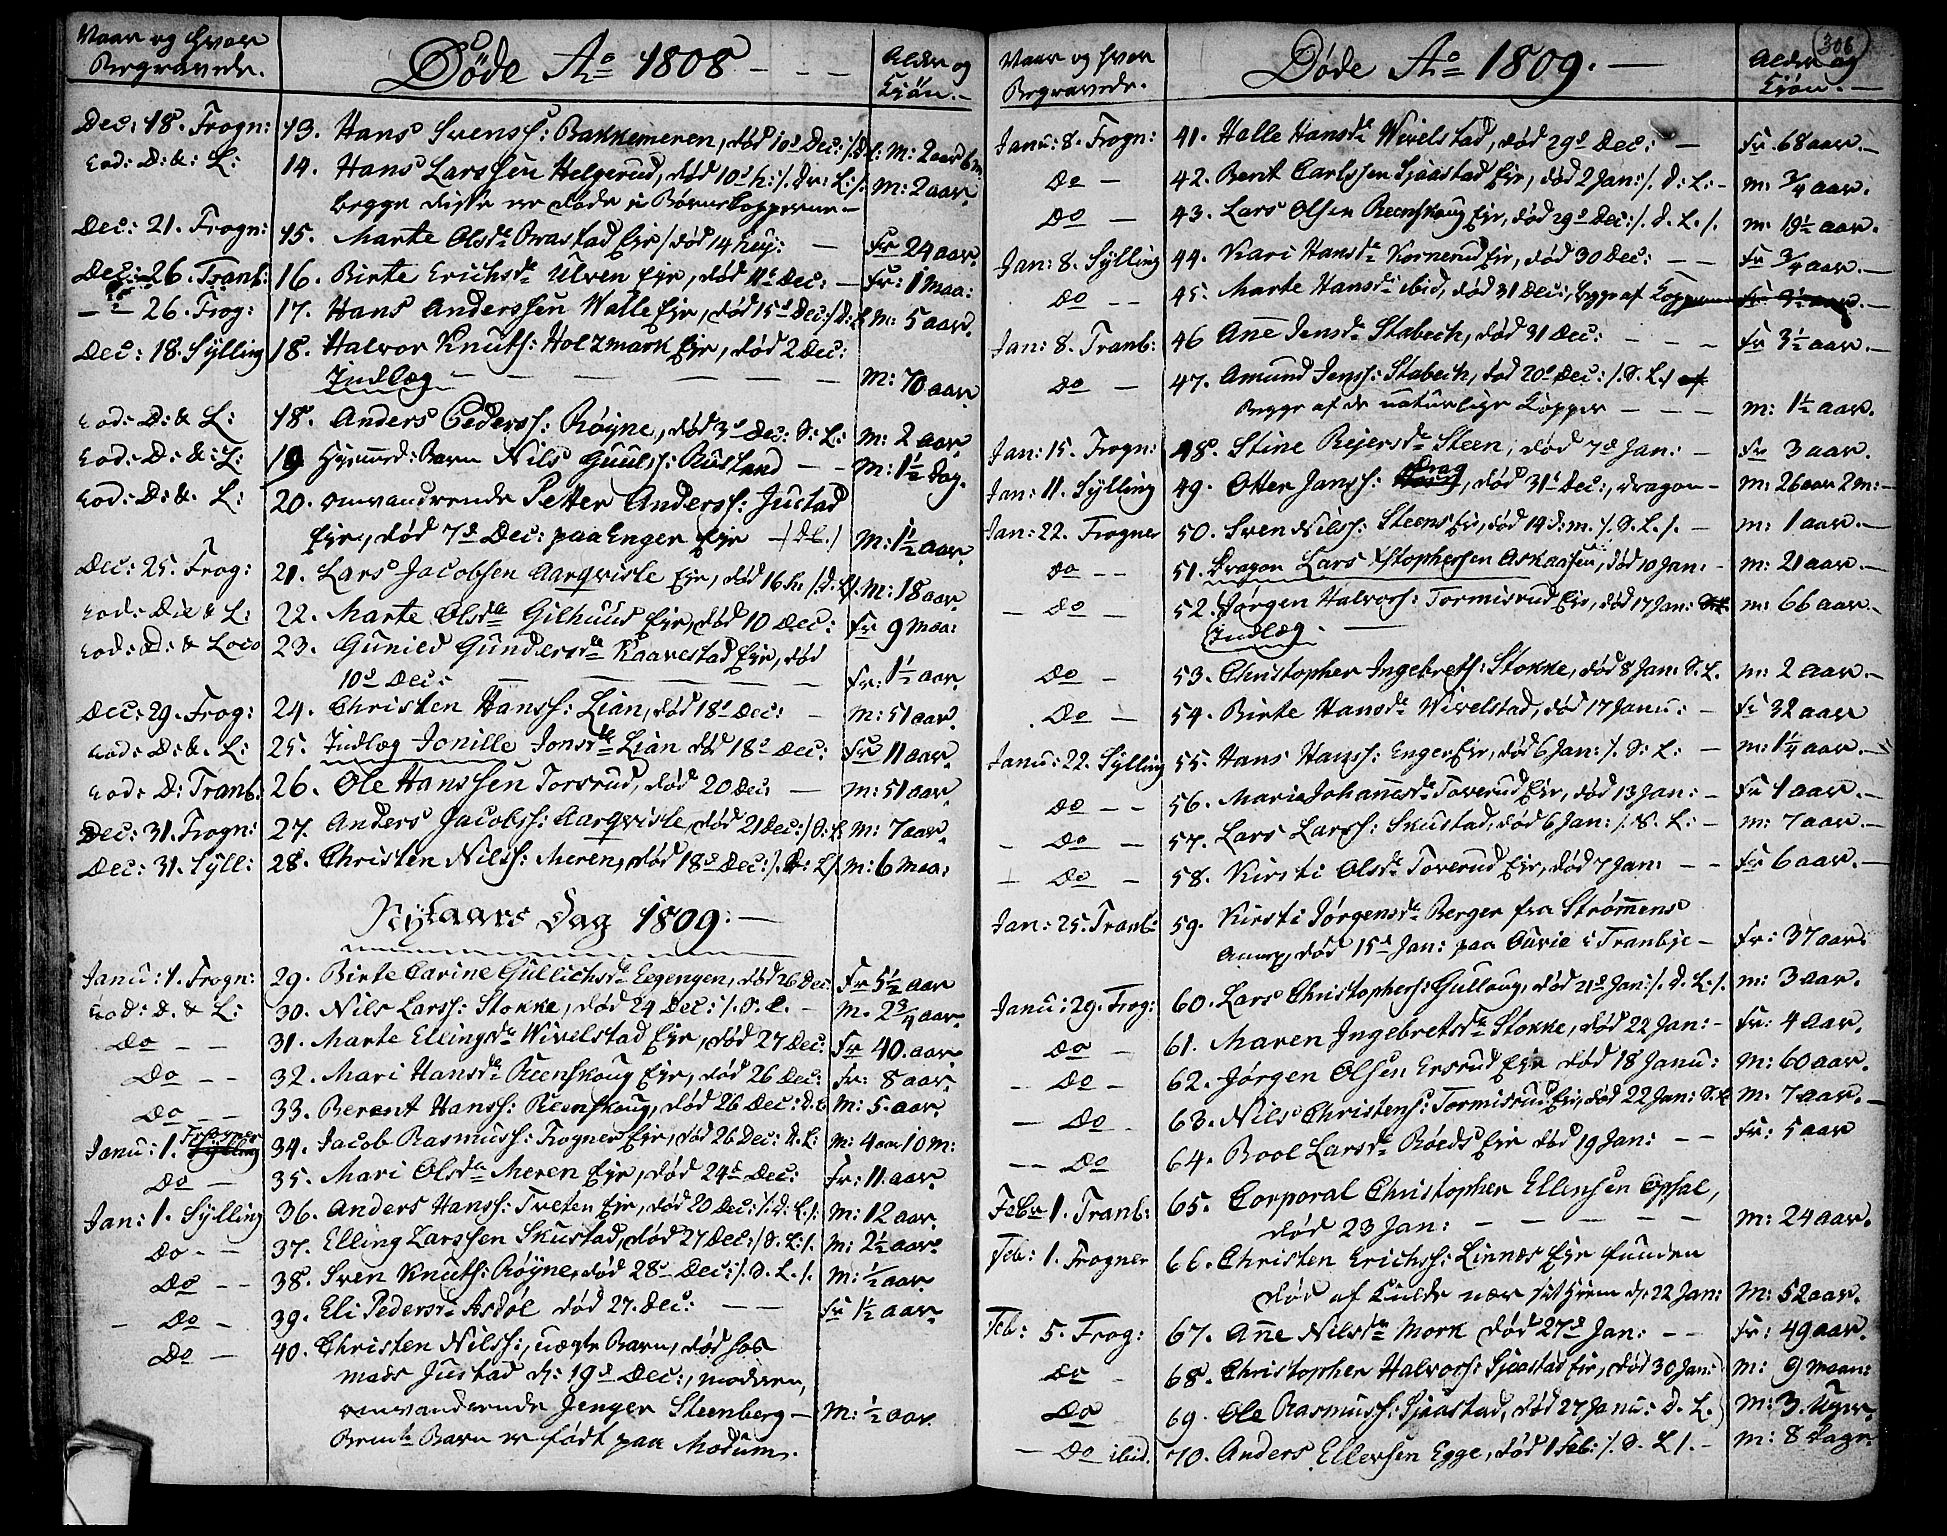 Naar og hvor
Begravede.
Døde Ao 1808
Alder og
Kjøn.
Dec: 18. Frogn: 13. Hans Svens: Bakkemeren, død 10d Dec: M: 2 aar 6 m
eod: D: &: L: 14. Hans Larssen Helgerud, død 10d h: M: 2 aar.
begge disse ere døde i Børnekopperne
Dec: 21. Frogn: 15. Marte Olsda Eje, død 14 huj: Fr 24 aar.
Dec: 26. Tranb: 16. Birte Erichsda Ulven Eje, død 11d Dec: Fr: 1 maa:
26. Frog: 17. Hans Anderssen Walle Eje, død 15d Dec: M: 5 aar.
Dec: 18. Sylling 18. Halvor Knuts: Holzmark Eje, død 2 Dec:
Indlæg M: 70 aar.
eod: D: & L: 18. Anders Peders: Røyne, død 3d Dec: D: L: M: 2 aar.
eod: D: &: L: 19 Barn Nils Guuls: Rustand M: 1½ dag.
eod: D: &. L: 20. omvandrende Petter Anders: Justad
Eje, død 7d Dec: paa Enger Eje M: 1½ aar.
Dec: 25. Frog: 21. Lars Jacobsen Aarqvisle Eje, død 16 h: M: 18 aar.
eod: Die & L: 22. Marte Olsda Gilhuus Eje, død 10 Dec: Fr 9 maa:
eod: D: & Loco 23. Gunild Gundersda Kaarestad Eje, død
10d Dec: Fr: 1½ aar.
Dec: 29. Frog: 24. Christen Hans: Lian, død 18d Dec: M: 51 aar.
eod: D: &. L: 25. Indlæg Jonille Jonsda Lian død 18d Dec: Fr 11 aar.
eod: D: Tranb: 26. Ole Hanssen Torsrud, død 20 Dec: M: 51 aar.
Dec: 31. Frogn: 27. Anders Jacobs: Aarqvisle, død 21 Dec: M: 7 aar.
Dec: 31. Syll: 28. Christen Nils: Meren, død 18d Dec: M: 6 maa:
Nytaars Dag 1809.
Janu: 1. Frogn: 29. Birte Carine Gullichsda Eegengen, død 26 Dec Fr 5½ aar
eod: D. & L: 30. Nils Lars: Stokke, død 24 Dec: D. L. M. 2¾ aar.
Do 31. Marte Ellingsda Wivelstad Eje, død 27 Dec: Fr 40. aar.
Do 32. Mari Hansda Reenskoug Eje, død 26 Dec: Fr: 8 aar.
Do 33. Berent Hans: Reenskoug, død 26 Dec: D: L M: 5. aar.
Janu: 1. Frogner 34. Jacob Rasmus: Frogner Eje, død 26 Dec: D. L: M: 4 aar 10 M:
Do 35. Mari Olsda Meren Eje, død 24d Dec: Fr: 11 aar.
Jan: 1. Sylling 36. Anders Hans: Tveten Eje, død 20 Dec: D: L: M: 12 aar.
Do 37. Elling Larssen Skustad, død 27 Dec: D. L: M: 2½ aar.
Do 38. Sven Knuts: Røyne, død 28d Dec: D. L. M: ½ aar.
Do 39. Eli Pedersda Asdøl død 27. Dec: Fr 1½ aar.
Do 40. Christen Nils:, uægte Barn, død hos
Mads Justad d: 19d Dec:, moderen,
omvandrende Jenger Steenberg M: ½ aar.
Bemte Barn er født paa Modum.
306
Naar og hvor
Begravede.
Døde Ao 1809.
Alder og
Kjøn.
Janu: 8. Frogn: 41. Halle Hansda Wivelstad, død 29d Dec: Fr 68 aar.
Do 42. Bent Carlssen Sjaastad Eje, død 2 Jan: D: L: M: ¾ aar.
Do 43. Lars Olsen Reenskoug Eje, død 29d Dec: D. L. M: 19½ aar.
Jan: 8. Sylling 44. Kari Hansda Kornerud Eje, død 30 Dec: Fr ¾ aar.
Do 45. Marte Hansda ibid, død 31 Dec:, begge af Kopperne
Jan: 8. Tranb: 46 Ane Jensda Stabech, død 31 Dec: Fr 3½ aar.
Do 47. Amund Jens: Stabech, død 20d Dec: D. L.
Begge af de naturlige Kopper M: 1½ aar.
Jan: 15. Frogn: 48. Stine Rejersda Steen, død 7d Jan: Fr 3 aar.
Jan: 11. Sylling 49. Otter Jans: Krag, død 31d Dec:, dragon M: 26 aar 2 m:
Jan: 22. Frogner 50. Sven Nils: Steens Eje, død 14 d: m. D. L. M: 1 aar.
Do 51. Dragon Lars Xstophersen Askaasen, død 10 Jan: M: 21 aar.
Do 52. Jørgen Halvors: Tormisrud Eje, død 17 Jan: M: 66 aar.
Indlæg.
Do 53. Christopher Ingebrets: Stokke, død 8 Jan: D. L. M: 2 aar.
Do 54. Birte Hansda Wivelstad, død 17 Janu: Fr 32 aar
Janu: 22. Sylling 55. Hans Hans: Enger Eje, død 6 Jan: D: L: M: 1¼ aar.
Do 56. Maria Johannesda Toverud Eje, død 13 Jan: Fr 1 aar.
Do 57. Lars Lars: Skustad, død 6 Jan: D. L: M: 7 aar.
Do 58. Kirsti Olsda Toverud Eje, død 7 Jan: Fr 6 aar.
Jan: 25. Tranb: 59. Kirsti Jørgensda Berger fra Strømmens
død 15d Jan: paa Curie i Tranbye Fr: 37 aar.
Janu: 29. Frog: 60. Lars Christophers: Gulloug, død 21d Jan: D. L. M: 3 aar.
Do 61. Maren Ingebretsda Stokke, død 22 Jan: Fr: 4 aar.
Do 62. Jørgen Olsen Ersrud Eje død 18 Janu: M: 60 aar.
Do 63. Nils Christens: Tormisrud Eje, død 22 Jan: D. L M. 7 aar.
Do 64. Bool Larsda Røeds Eje død 19 Jan: Fr: 5 aar
Febr 1. Tranb: 65. Corporal Christopher Ellensen Opsal,
død 23 Jan: M: 24 aar.
Feb: 1. Frogner 66. Christen Erichs: Linnes Eje funden
død af Kulde nær sit Hiem d. 22 Jan: M: 52 aar.
Feb: 5. Frog: 67. Ane Nilsda Mork død 27d Jan: Fr: 49 aar.
Do 68. Christopher Halvors: Sjaastad Eje, død 30 Jan: M: 9 maan:
Do 69. Ole Rasmus: Sjaastad, død 27 Janu: D. L. M: 3. Uger.
Do ibid. 70. Anders Ellevsen Egge, død 1 Feb: D. L. M: 8 dage.